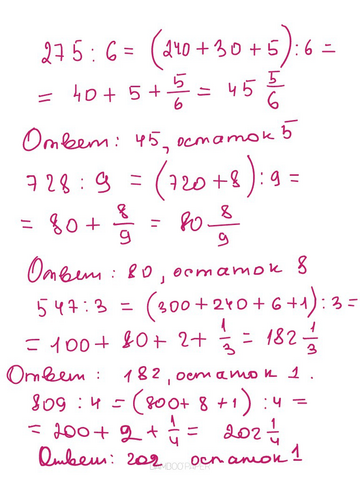 275 : 6 = (240+30+5) : 6 =
= 40 + 5 + 5/6 = 45 5/6
Ответ: 45, остаток 5
728 : 9 = (720+8) : 9 =
= 80 + 8/9 = 80 8/9
Ответ: 80, остаток 8
547 : 3 = (300+240+6+1) : 3 =
= 100 + 80 + 2 + 1/3 = 182 1/3
Ответ: 182, остаток 1.
809 : 4 = (800+8+1) : 4 =
= 200 + 2 + 1/4 = 202 1/4
Ответ: 202 остаток 1
BAMBOO PAPER